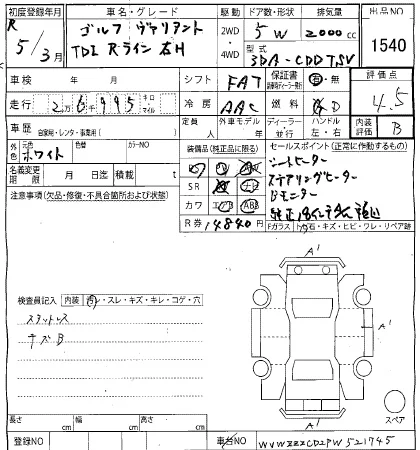 初度登録年月 車名・グレード 駆動 ドア数・形状 排気量 出品NO
R 5/3月 ゴルフ ヴァリアント 2WD 5W 2000cc 1540
TDI R-ライン 右H 4WD 型式 3DA-CDDTSV
車検 年 月 シフト FAT 保証書 有・無 評価点
走行 2万6千995 キロ マイル 冷房 AAC 燃料 D 4.5
車歴 自家用・レンタ・事業用( ) 定員 人 外車モデル 年 ディーラー 並行 ハンドル 左・右 内装評価 B
外色 元色 ホワイト 色替 カラーNO 装備品(純正品に限る) セールスポイント(正常に作動するもの)
名義変更期限 月 日 積載 t シートヒーター
注意事項(欠品・修復・不具合箇所および状態) SR ステアリングヒーター
カワ エアB ABS Bモニター
R券 14840円
Fガラス 石・キズ・ヒビ・ワレ・リペア跡
A'
検査員記入 内装 汚レ・スレ・キズ・キレ・コゲ・穴
スタットレス
キズB
A'
A'
スペア
長さ cm 幅 cm 高さ cm
登録NO 車台NO WVWZZZCDZPW521745